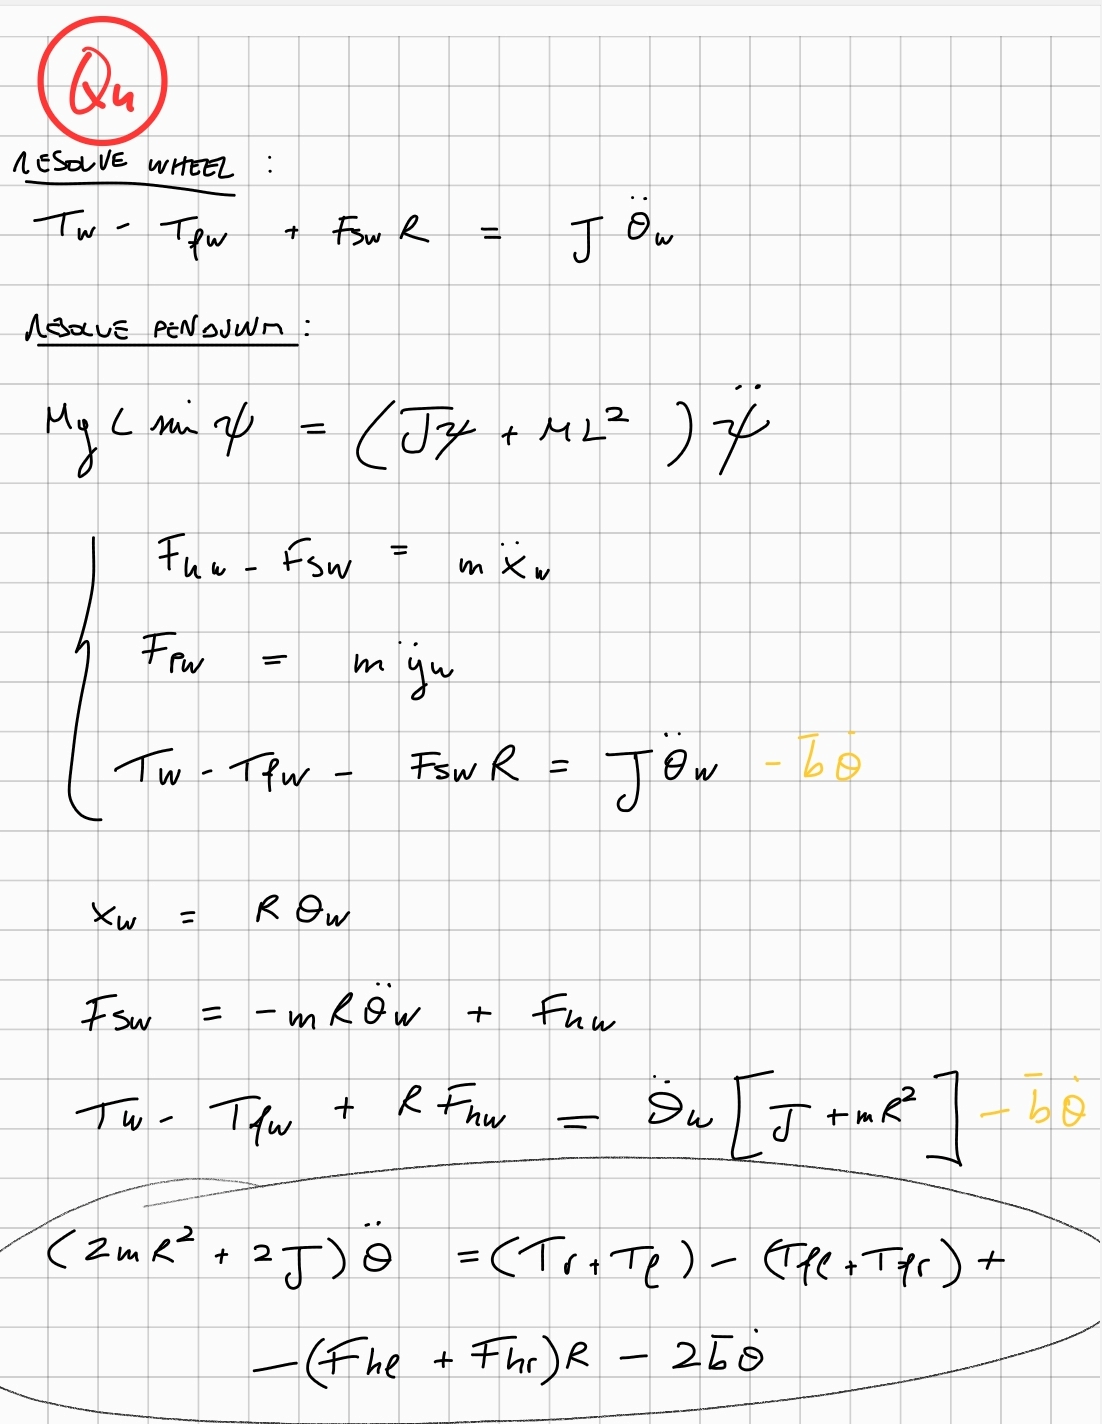 Q4
RESOLVE WHEEL :
T_w - T_{fw} + F_{sw} R = J \ddot{θ}_w
RESOLVE PENDULUM :
M g L sin ψ = (J_ψ + M L^2) \ddot{ψ}
F_{hw} - F_{sw} = m \ddot{x}_w
F_{pw} = m \ddot{y}_w
T_w - T_{fw} - F_{sw} R = J \ddot{θ}_w - \bar{b} \dot{θ}
x_w = R θ_w
F_{sw} = -m R \ddot{θ}_w + F_{hw}
T_w - T_{fw} + R F_{hw} = \ddot{θ}_w [J + m R^2] - \bar{b} \dot{θ}
(2 m R^2 + 2 J) \ddot{θ} = (T_r + T_l) - (T_{fl} + T_{fr}) +
- (F_{hl} + F_{hr}) R - 2 \bar{b} \dot{θ}